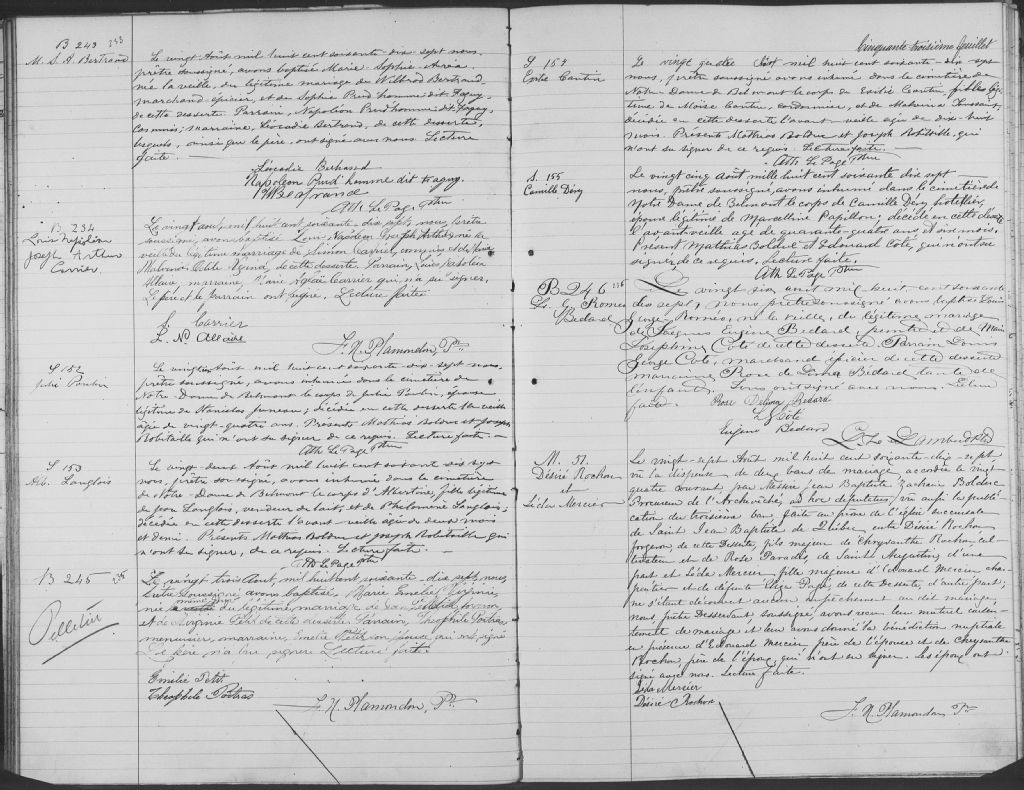 B 243 233
M. S. A. Bertrand
Le vingt Août mil huit cent soixante-dix-sept nous
prêtre soussigné, avons baptisé Marie-Sophie
née la veille, du légitime mariage de Bertrand
marchand épicier, et de Sophie Prud'homme dit Fagny,
de cette desserte. Parrain, Napoléon Prud'homme dit Fagny,
Commis; marraine, Léocadie Bertrand, de cette desserte,
lesquels, ainsi que le père, ont signé avec nous. Lecture
faite.
Léocadie Bertrand
Napoléon Prud'homme dit Fagny
Ath Le Page Ptre
B. 234
Louis Napoléon
Joseph Arthur
Carrier
Le vingt août, mil huit cent soixante dix sept, nous, prêtre
soussigné, avons baptisé Louis Napoléon Joseph Arthur, né la
veille du légitime mariage de Simon Carrier, commis et de Marie
de cette desserte. Parrain, Louis Napoléon
Allaire, marraine, Marie Carrier qui n'a su signer.
Le père et le parrain ont signé. Lecture faite
S. Carrier
L. N. Allaire
F. X. Plamondon, Ptre
S 152
Julie Poulin
Le vingt Août mil huit cent soixante-dix-sept nous,
prêtre soussigné, avons inhumé dans le cimetière de
Notre-Dame de Belmont le corps de Julie Poulin, épouse
légitime de Stanislas Juneau; décédée en cette desserte
âgée de vingt-quatre ans. Présents Mathias Bolduc et Joseph
Robitaille qui n'ont su signer de ce requis. Lecture faite.
Ath Le Page Ptre
S 153
Alb. Langlois
Le vingt-deux Août mil huit cent soixante dix sept
nous, prêtre soussigné, avons inhumé dans le cimetière
de Notre-Dame de Belmont le corps d'Albertine, fille légitime
de Jean Langlois, vendeur de lait, et de Philomène Langlois;
décédée en cette desserte l'avant-veille âgée de deux mois
et demi. Présents Mathias Bolduc et Joseph Robitaille qui
n'ont su signer, de ce requis. Lecture faite.
Ath Le Page Ptre
B 245 235
Pelletier
Le vingt trois Août, mil huit cent soixante-dix sept, nous,
Prêtre soussigné, avons baptisé, Marie Emélie Virginie,
née du légitime mariage de
et de Virginie Petit de cette desserte. Parrain, Théophile Poitras,
menuisier, marraine, Emélie Petit son épouse, qui ont signé
Le père n'a su signer Lecture faite.
Emélie Petit
Théophile Poitras
F. X. Plamondon, Ptre
Cinquante troisième feuillet
S 154
Emilie Cantin
Le vingt quatre Août mil huit cent soixante-dix sept
nous, prêtre soussigné avons inhumé dans le cimetière de
Notre Dame de Belmont le corps de Emilie Cantin, fille légi-
time de Moïse Cantin, cordonnier, et de Malvina Toussaint,
décédée en cette desserte l'avant-veille âgée de dix-huit
mois. Présents Mathias Bolduc et Joseph Robitaille, qui
n'ont su signer de ce requis. Lecture faite.
Ath. Le Page Ptre
S. 155
Camille Déry
Le vingt cinq Août mil huit cent soixante dix sept
nous, prêtre soussigné, avons inhumé dans le cimetière de
Notre Dame de Belmont le corps de Camille Déry, hôtellier,
époux légitime de Marcelline Papillon; décédé en cette desserte
l'avant-veille âgé de quarante-quatre ans et six mois.
Présents Mathias Bolduc et Edouard Côté, qui n'ont su
signer de ce requis. Lecture faite.
Ath Le Page Ptre
B 246 236
Ls. G. Roméo
Bedard
Le vingt six août mil huit cent soixante
dix sept, nous prêtre soussigné avons baptisé Louis
George Roméo, né la veille, du légitime mariage
de Jacques Eugène Bédard, peintre et de Marie
Josephine Côté de cette desserte. Parrain Louis
George Côté, marchand épicier de cette desserte
marraine Rose de Lima Bédard tante de
l'enfant, Tous ont signé avec nous. Lecture
faite.
Rose Délima Bédard
L. G. Côté
Eugène Bedard
M. 51.
Désiré Rochon
et
Léda Mercier
Le vingt-sept Août mil huit cent soixante-dix-sept
vu la dispense de deux bans de mariage accordée le vingt
quatre courant par Messire Jean Baptiste Zacharie Bolduc
Procureur de l'Archevêché, ad hoc deputatus; vu aussi la publi-
cation du troisième ban, faite au prône de l'église succursale
de Saint Jean Baptiste de Québec, entre Désiré Rochon
forgeron, de cette Desserte, fils majeur de Chrysanthe Rochon, cul-
tivateur et de Rose Paradis, de Saint Augustin, d'une
part et Léda Mercier fille majeure d'Edouard Mercier char-
pentier et de défunte Elize Pagé, de cette desserte, d'autre part;
ne s'étant découvert aucun empêchement au dit mariage,
nous, prêtre Desservant, soussigné, avons reçu leur mutuel consen-
tement de mariage et leur avons donné la bénédiction nuptiale
en présence d'Edouard Mercier père de l'épouse et de Chrysanthe
Rochon père de l'époux, qui n'ont su signer. Les époux ont
signé avec nous. Lecture faite.
Léda Mercier
Désiré Rochon
F. X. Plamondon, Ptre